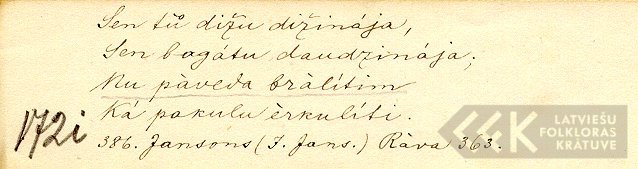 Sen tů dižu dižinája,
Sen bagátu daudzinája;
Nu pàveda brālítim
Ká pakulu èrkulíti.
172i
386. Jansons (J. Jans.) Ràva 363.
LATVIEŠU
FOLKLORAS
KRĀTUVE